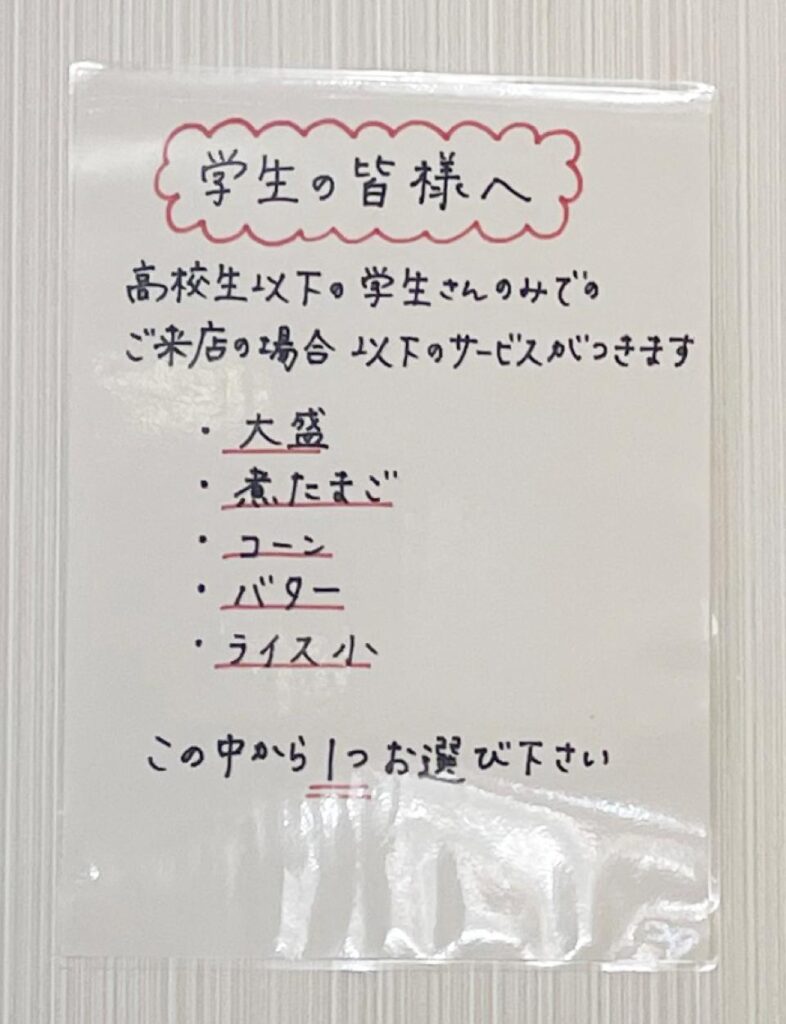 学生の皆様へ
高校生以下の学生さんのみでの
ご来店の場合 以下のサービスがつきます
・大盛
・煮たまご
・コーン
・バター
・ライス小
この中から1つお選び下さい